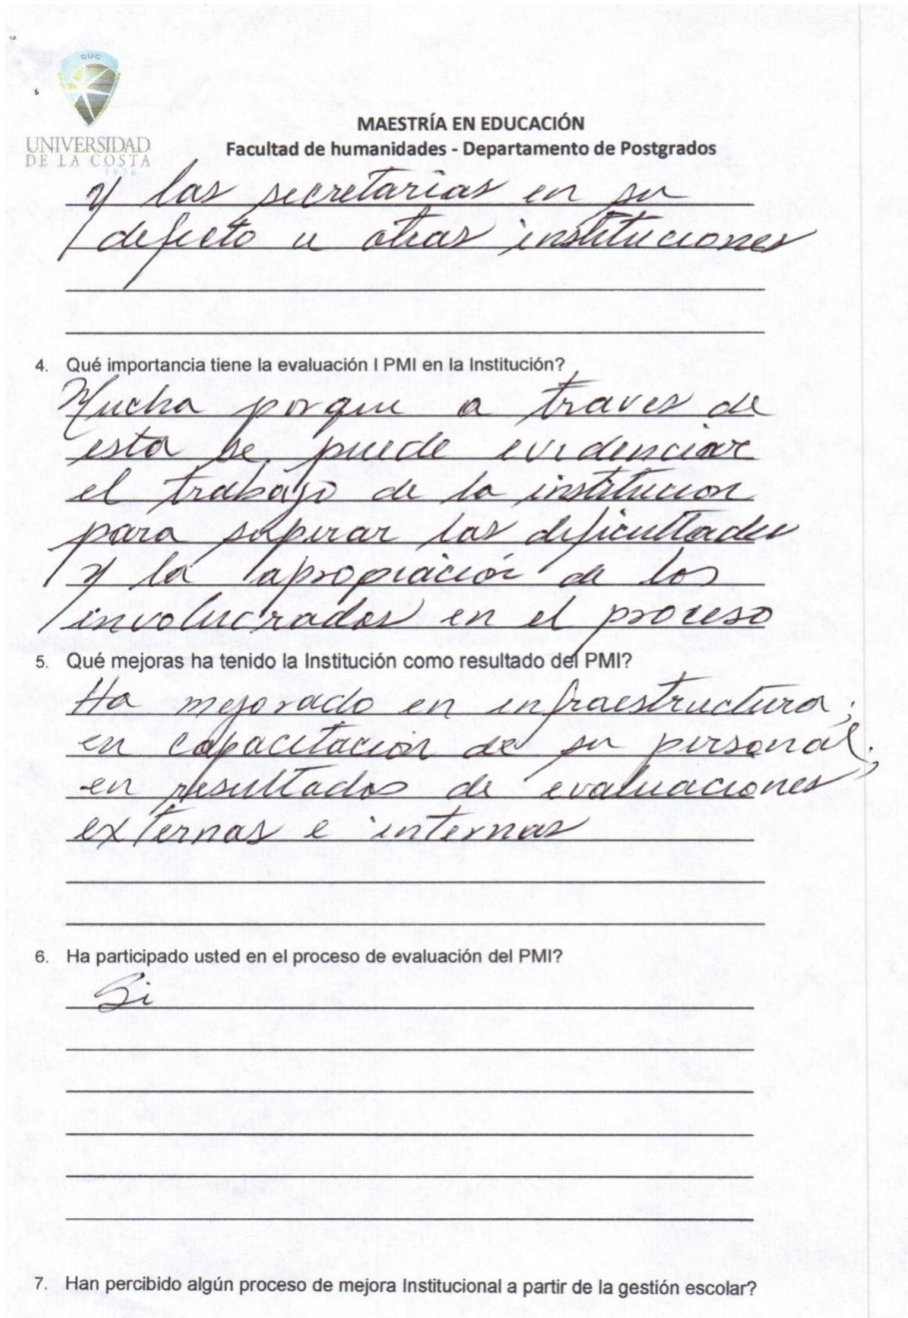 CUC
UNIVERSIDAD
DE LA COSTA
1970
MAESTRÍA EN EDUCACIÓN
Facultad de humanidades - Departamento de Postgrados
y las secretarias en su
defecto u otras instituciones
4. Qué importancia tiene la evaluación l PMI en la Institución?
Mucha porque a traves de
esta se puede evidenciar
el trabajo de la institucion
para superar las dificultades
y la apropiación de los
involucrados en el proceso
5. Qué mejoras ha tenido la Institución como resultado del PMI?
Ha mejorado en infraestructura;
en capacitación de su personal;
en resultados de evaluaciones
externas e internas
6. Ha participado usted en el proceso de evaluación del PMI?
Si
7. Han percibido algún proceso de mejora Institucional a partir de la gestión escolar?